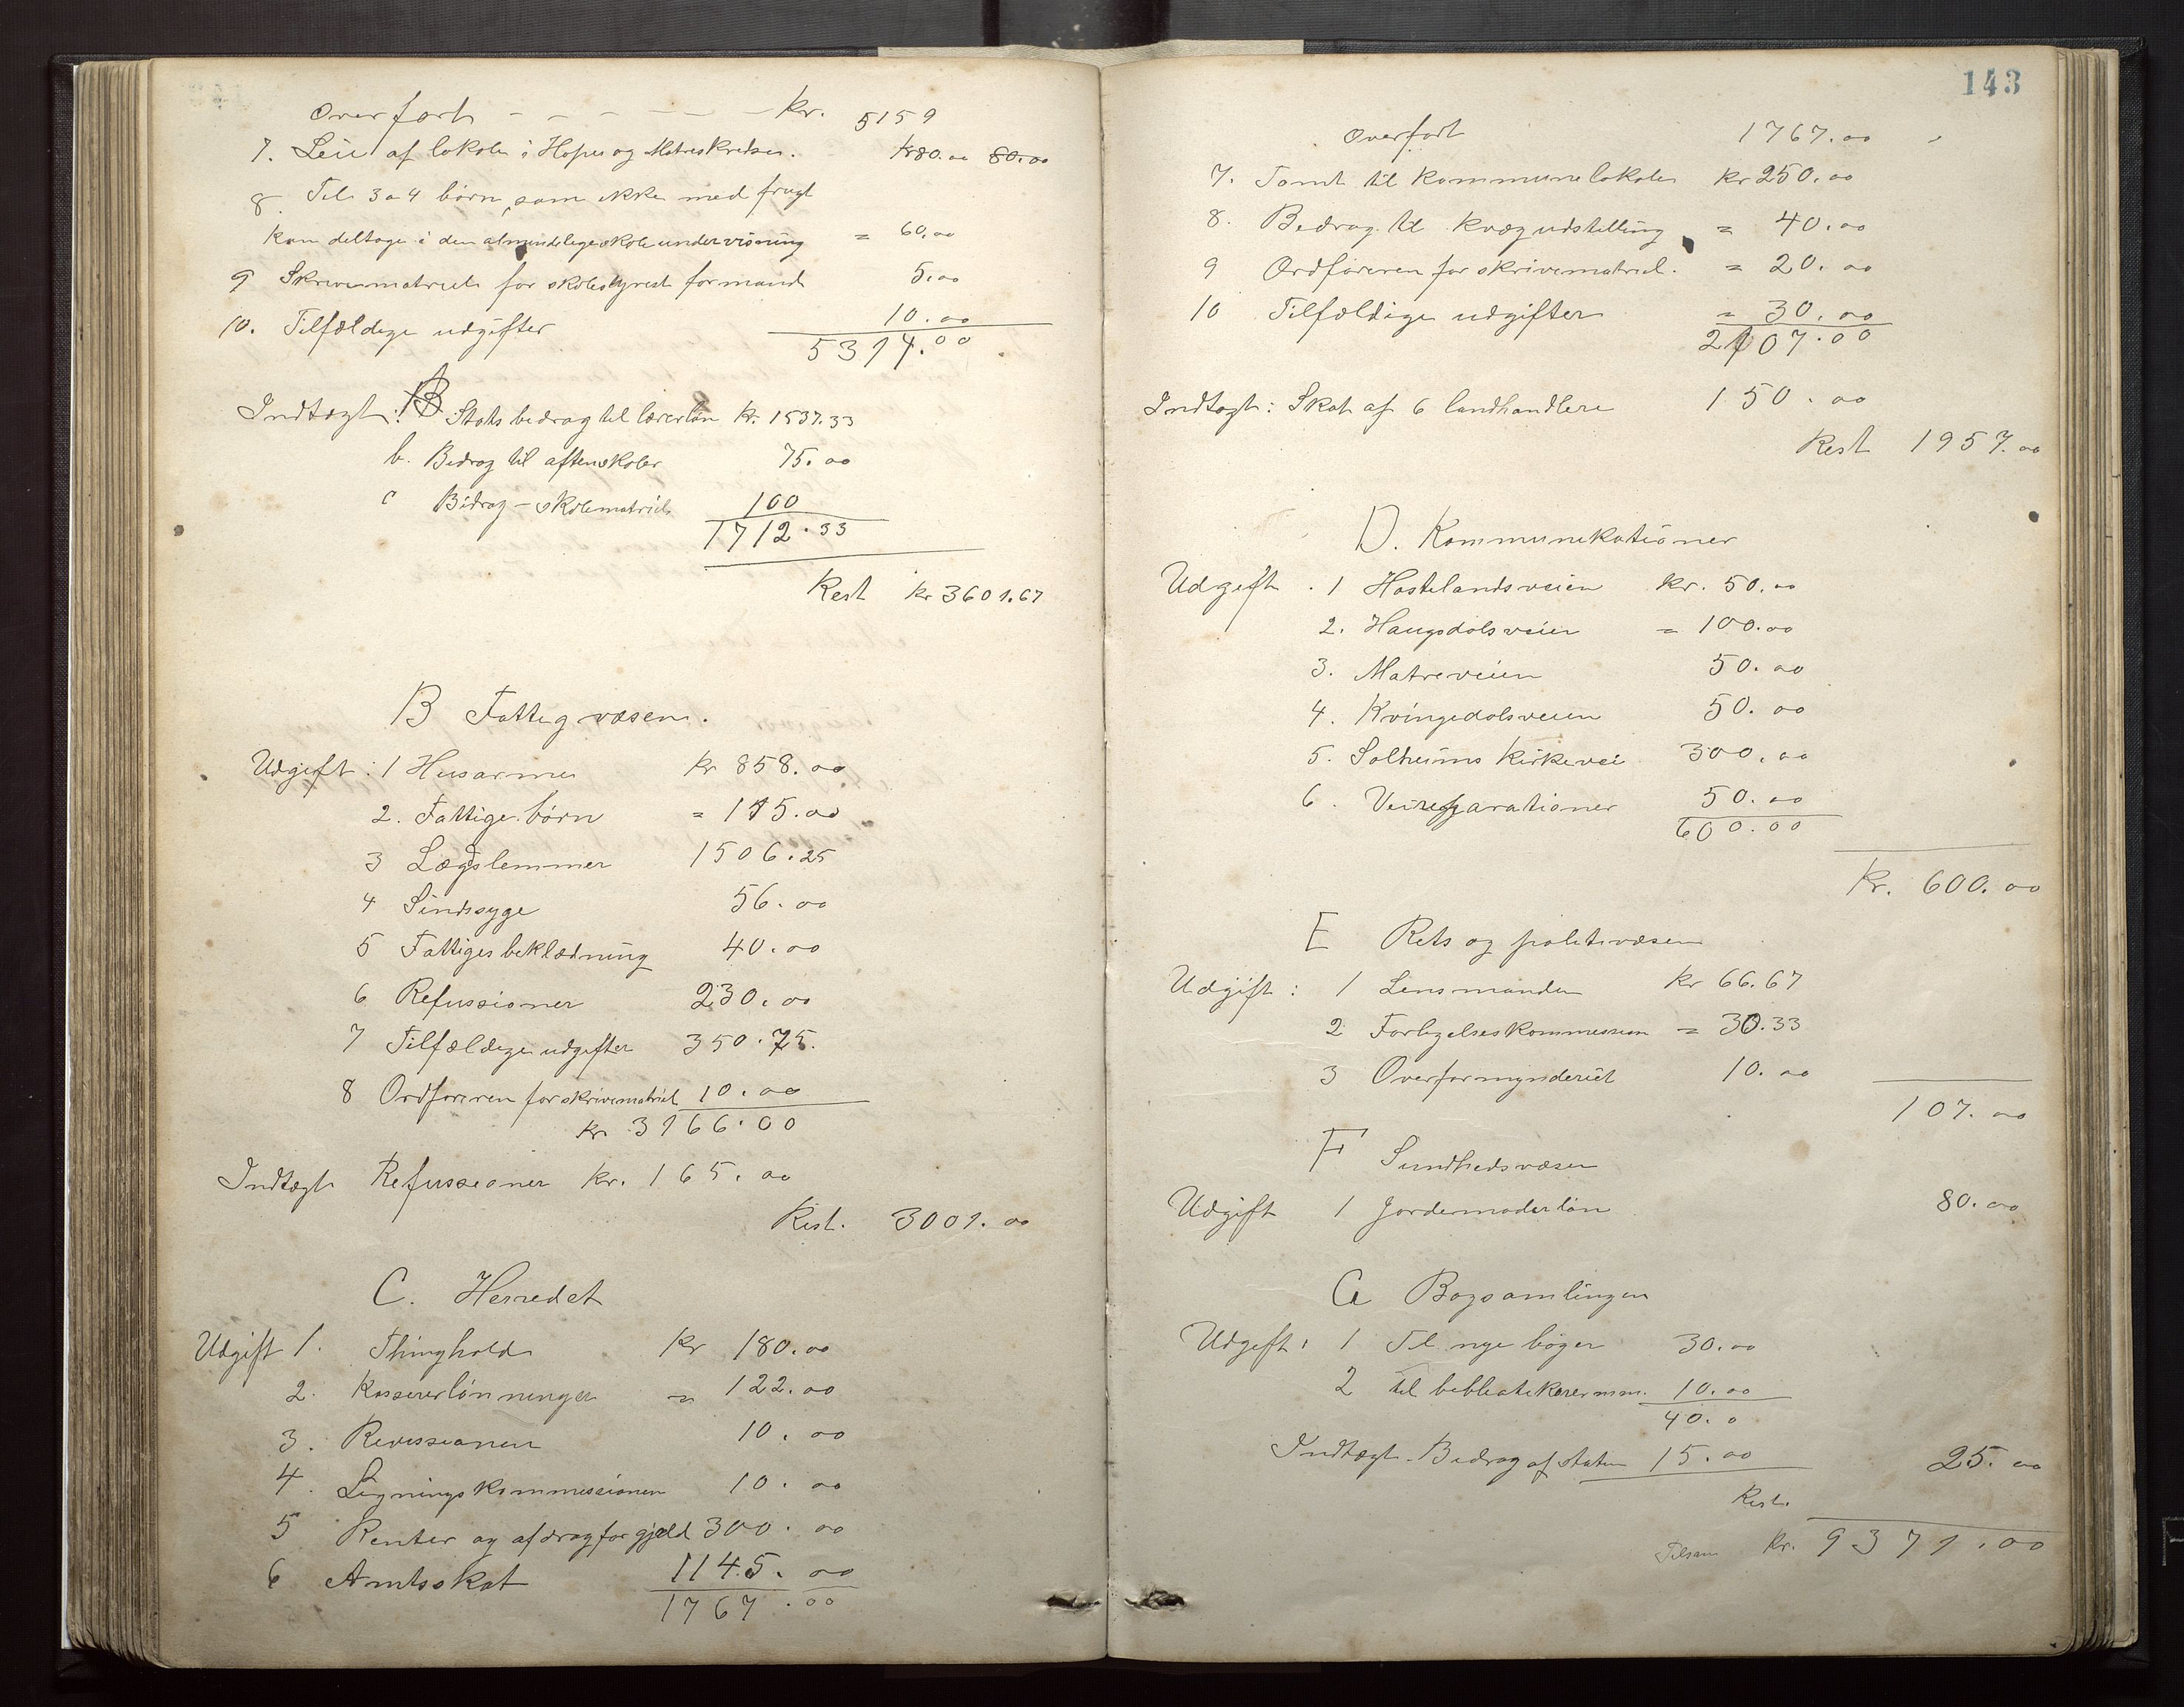 Overført - - - - - kr. 5159
7. Leie af lokaler i Hope og Matreskredsen. kr 80.00 80.00
8. Til 3 a 4 børn, som ikke med frugt
kan deltage i den almindelige skoleundervisning = 60.00
9 Skrivematriel for skolestyrets formand 5.00
10. Tilfældige udgifter 10.00
5314.00
Indtægt: Statsbedrag til lærerløn kr. 1537.33
b. Bidrag til aftenskoler 75.00
c Bidrag - skolematriel 100
1712.33
Rest kr 3601.67
B Fattigvæsen.
Udgift: 1 Husarme kr 858.00
2. Fattige børn = 115.00
3 Lægslemmer 1506.25
4 Sindssyge 56.00
5 Fattiges beklædning 40.00
6 Refussioner 230.00
7 Tilfældige udgifter 350.75.
8 Ordføreren for skrivematriel 10.00
kr 3166.00
Indtægt Refussioner kr. 165.00
Rest. 3001.00
C. Herredet
Udgift 1. Thinghold kr 180.00
2. Kassererlønninger = 122.00
3. Revissionen 10.00
4. Ligningskommissionen 10.00
5 Renter og afdrag for gjæld 300.00
6 Amtsskat 1145.00
1767.00
143
Overført 1767.00
7. Tomt til kommunelokale kr 250.00
8. Bedrag til kvægudstilling = 40.00
9 Ordføreren for skrivematriel. = 20.00
10 Tilfældige udgifter = 30.00
2107.00
Indtægt: Skat af 6 landhandlere 150.00
Rest 1957.00
D. Kommunikationer
Udgift. 1 Hostelandsveien kr. 50.00
2. Haugsdalsveien = 100.00
3. Matreveien 50.00
4. Kvingedalsveien 50.00
5. Solheims kirkevei 300.00
6. Veireparationer 50.00
600.00
kr. 600.00
E Rets og politivæsen
Udgift: 1 Lensmanden kr 66.67
2 Forligelseskommission = 30.33
3 Overformynderiet 10.00
107.00
F Sundhedsvæsen
Udgift 1 Jordemoderløn 80.00
G Bogsamlingen
Udgift: 1 Til nye bøger 30.00
2 til bibliotekarer m.m. 10.00
40.0
Indtægt. Bidrag af staten 15.00 25.00
Rest.
Tilsam kr. 9371.00